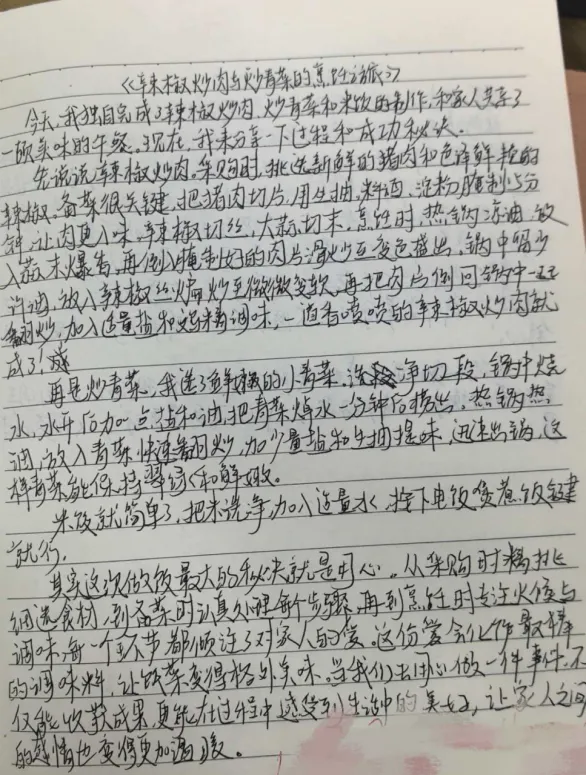 《辣椒炒肉与炒青菜的烹饪之旅》
今天，我独自完成了辣椒炒肉，炒青菜和米饭的制作，和家人共享了
一顿美味的午餐。现在，我来分享一下过程和成功秘诀。
先说说辣椒炒肉。采购时，挑选新鲜的猪肉和色泽鲜艳的
辣椒。备菜很关键，把猪肉切片，用生抽，料酒，淀粉腌制15分
钟，让肉更入味，辣椒切丝，大蒜切末。烹饪时，热锅凉油，放
入蒜末爆香，再倒入腌制好的肉片滑炒至变色盛出，锅中留少
许油，放入辣椒丝煸炒至微微变软，再把肉片倒回锅中一起
翻炒，加入适量盐和鸡精调味，一道香喷喷的辣椒炒肉就
成了！
再是炒青菜，我选了新鲜的小青菜，洗净切段，锅中烧
水，水开后加点盐和油，把青菜焯水一分钟后捞出，热锅热
油，放入青菜快速翻炒，加少量盐和生抽提味，迅速出锅，这
样青菜能保持翠绿和鲜嫩。
米饭就简单了，把米洗净，加入适量水，按下电饭煲煮饭键
就行。
其实这次做饭最大的秘诀就是用心。从采购时精挑
细选食材，到备菜时认真处理每个步骤，再到烹饪时专注火候与
调味，每一个环节都倾注了对家人的爱。这份爱会化作最棒
的调味料，让饭菜变得格外美味。当我们去用心做一件事件，不
仅能收获成果，更能在过程中感受到生活中的美好，让家人之间
的感情也变得更加温暖。